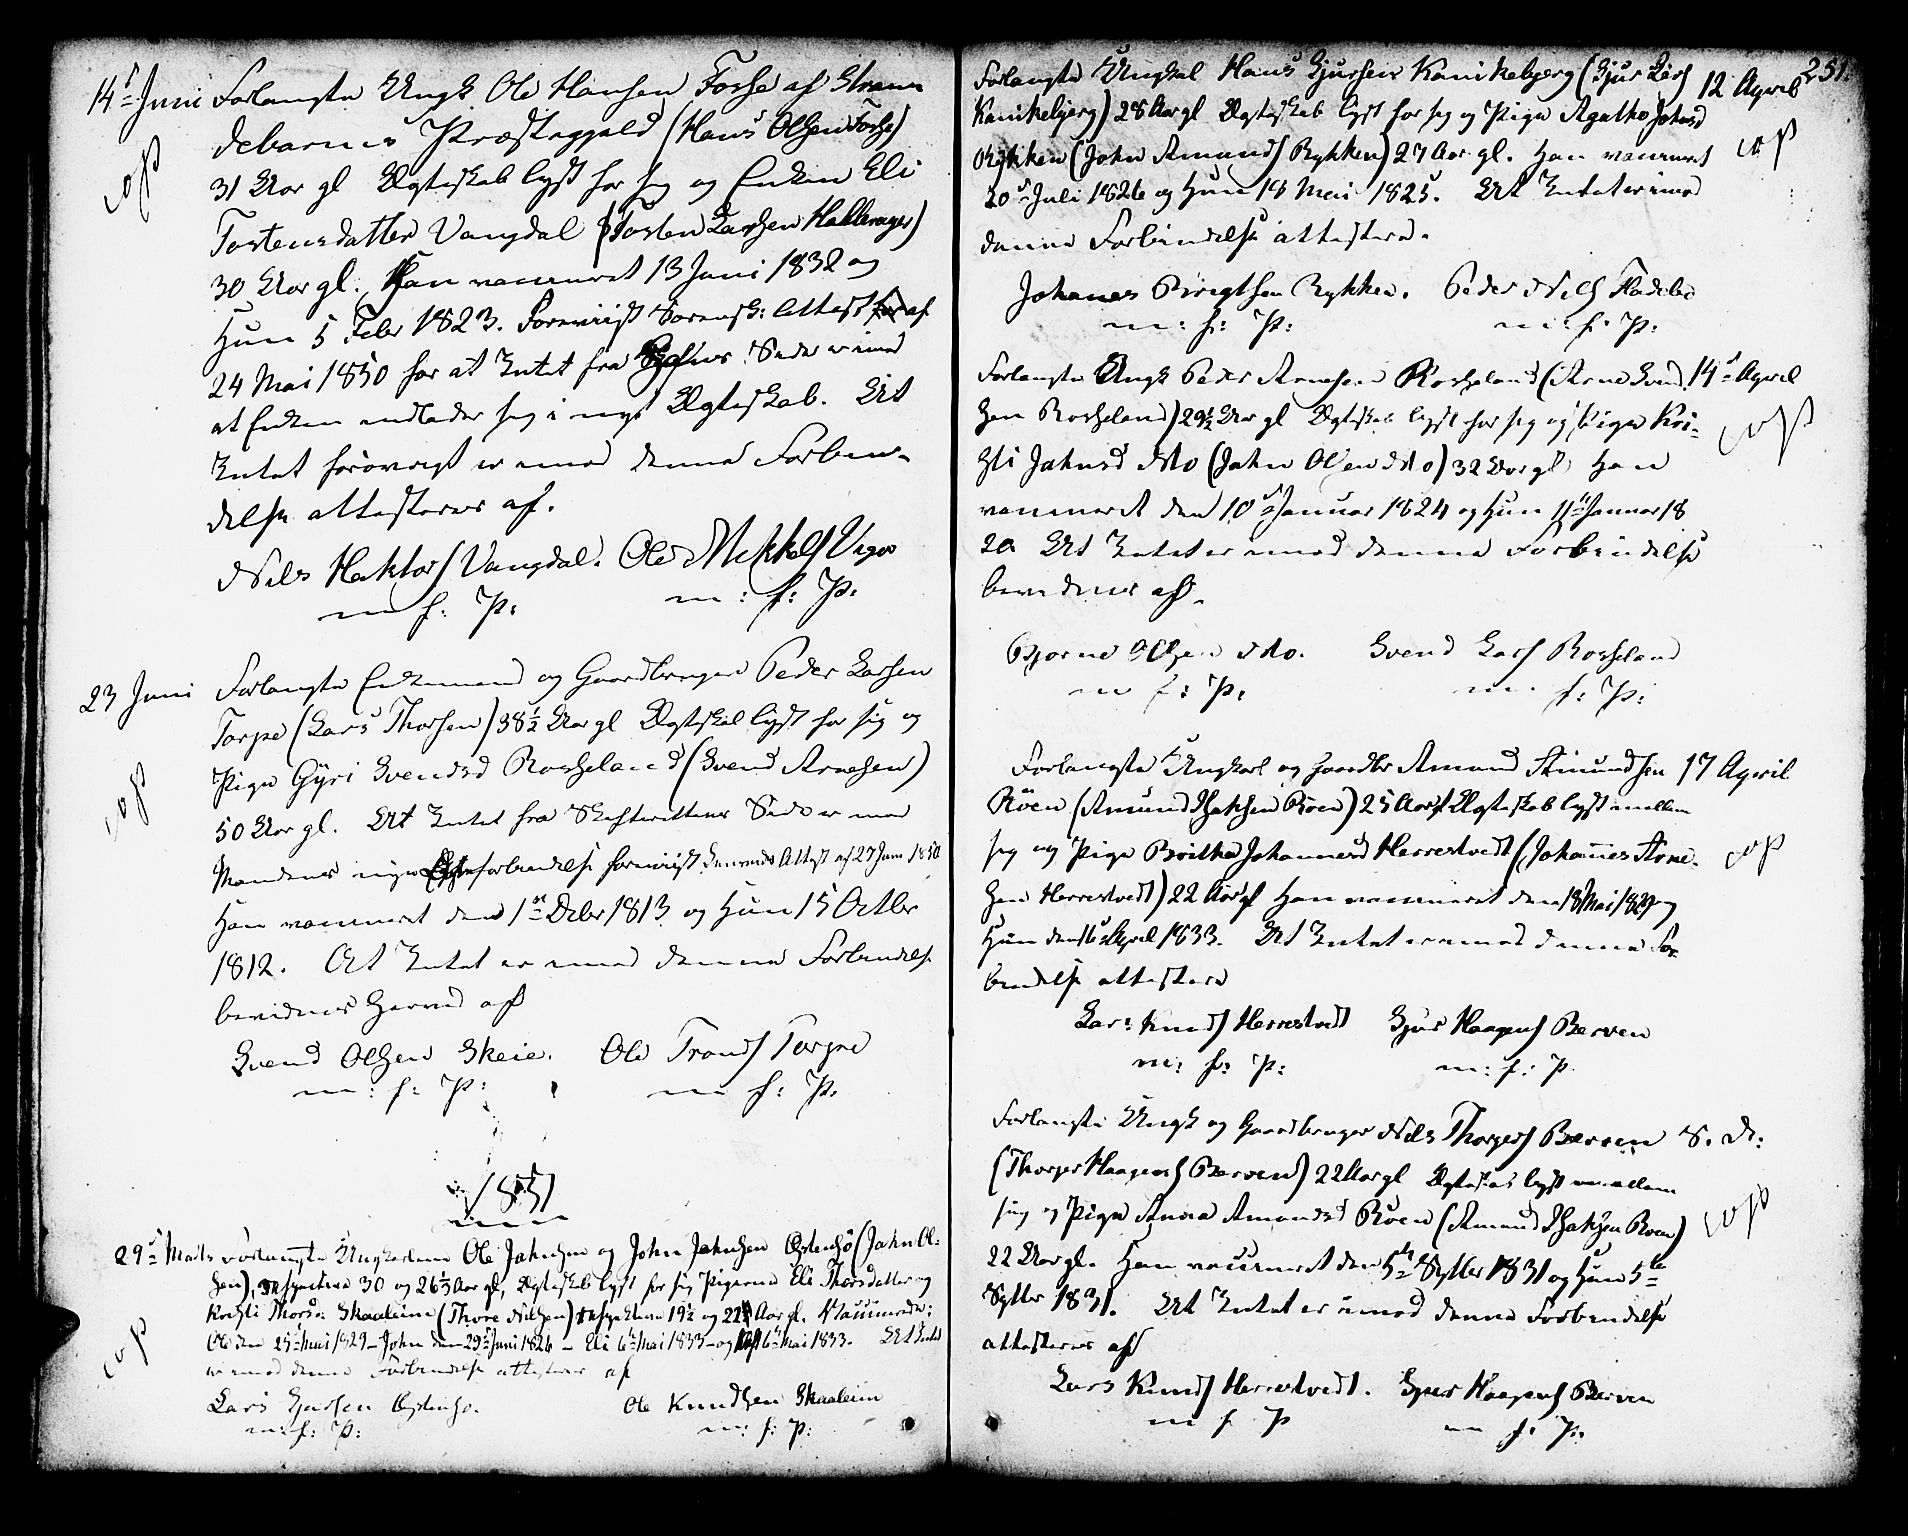 14de Juni Forlangte Ungk. Ole Hansen Fosse af Stran-
debarms Præstegjeld (Hans Olsen Fosse)
31 Aar gl Ægteskab lyst for sig og Enken Eli
Tostensdatter Vangdal (Tosten Larssen Hallerager)
30 Aar gl. Han vaccineret 13 Juni 1832 og
Hun 5 Febr 1823. Foreviist Sorensk: Attest af
24 Mai 1850 for at Intet fra Skiftets Side er imod
at Enken indlader sig i nyt Ægteskab. At
Intet forøvrigt er imod denne Forbin-
delse attesteres af.
Nils Haktors Vangdal. Ole Mikkels Vigøe
m f: P: m: f: P:
cop
23 Juni Forlangte Enkemand og Gaardbruger Peder Larsen
Torpe (Lars Thorsen) 38½ Aar gl Ægteskab lyst for sig og
Pige Gyri Svendsd Rosseland (Svend Arnesen)
50 Aar gl. At Intet fra Skifterettens Side er mod
Mandens nye forbindelse foreviist Attest af 27 Juni 1850
Han vaccineret den 1ste Debr 1813 og Hun 15 Octbr
1812. At Intet er imod denne Forbindelse
bevidnes herved af
Svend Olsen Skeie. Ole Tronds Torpe
m: f: P: m f: P.
cop
1851
29de Marts Forlangte Ungkarlene Ole Johnsen og John Johnsen Øystensø (John Ol-
sen), respective 30 og 26½ Aar gl, Ægteskab lyst for sig Pigerne Eli Thorsdatter og
Kristi Thorsd: Skaaleim (Thore Nilsen) respective 19½ og 22 Aar gl. Vaccinerede:
Ole den 25de Mai 1829 – John den 29de Juni 1826 – Eli 6te Mai 1833 – og 6te Mai 1833. At Intet
er imod denne Forbindelse attesteres af
Lars Gjursen Øystensø. Ole Knudsen Skaaleim
m: f: P: m: f: P:
cop
251.
Forlangte Ungkal Hans Sjursen Kanikebjerg (Sjur Lars 12 April
Kanikebjerg) 28 Aar gl Ægteskab lyst for sig og Pige Agatha Johnsd
Rykken (John Amunds Rykken) 27 Aar gl. Han vaccineret cop
20de Juli 1826 og Hun 18 Mai 1825. At Intet er imod
denne Forbindelse attestere.
Johanes Brigtsen Rykken. Peder Nils Fladebø
m: f: P: m: f: P:
Forlangte Ungk Peder Arnesen Rosseland (Arne Svend 14de April
sen Rosseland) 29½ Aar gl Ægteskab lyst for sig og Pige Kri-
sti Johnsd Mo (John Olsen Mo) 32 Aar gl Han cop
vaccineret den 10de Januar 1824 og Hun 11te Januar 18
20 At Intet er imod denne Forbindelse
bevidnes af.
Bjørne Olsen Mo. Svend Lars Rosseland
m f: P: m. f: P:
Forlangte Ungkarl og Gaardbr Amund Amundsen 17 April
Røen (Amund Isaksen Røen) 25 Aar gl Ægteskab lyst mellem
sig og Pige Britha Johannesd Herrestvedt (Johannes Arne- cop
sen Herrestvedt) 22 Aar gl Han vaccineret den 18 Mai 1829 og
Hun den 16de April 1833. At Intet er imod denne For-
bindelse attestere
Lars Knuds Herrestvedt Sjur Haagens Berven
m: f: P: m: f: P.
Forlangte Ungk og Gaardbruger Nils Thorgers Berven S. D:
(Thorger Haagens Berven) 22 Aar gl Ægteskab lyst mellem
sig og Pige Anna Amundsd Røen (Amund Isaksen Røen) cop
22 Aar gl. Han vaccineret den 5te Septbr 1831 og Hun 5te
Septbr 1831. At Intet er imod denne Forbindelse
attesteres af
Lars Knuds Herrestvedt. Sjur Haagens Berven
m f P m f: P: